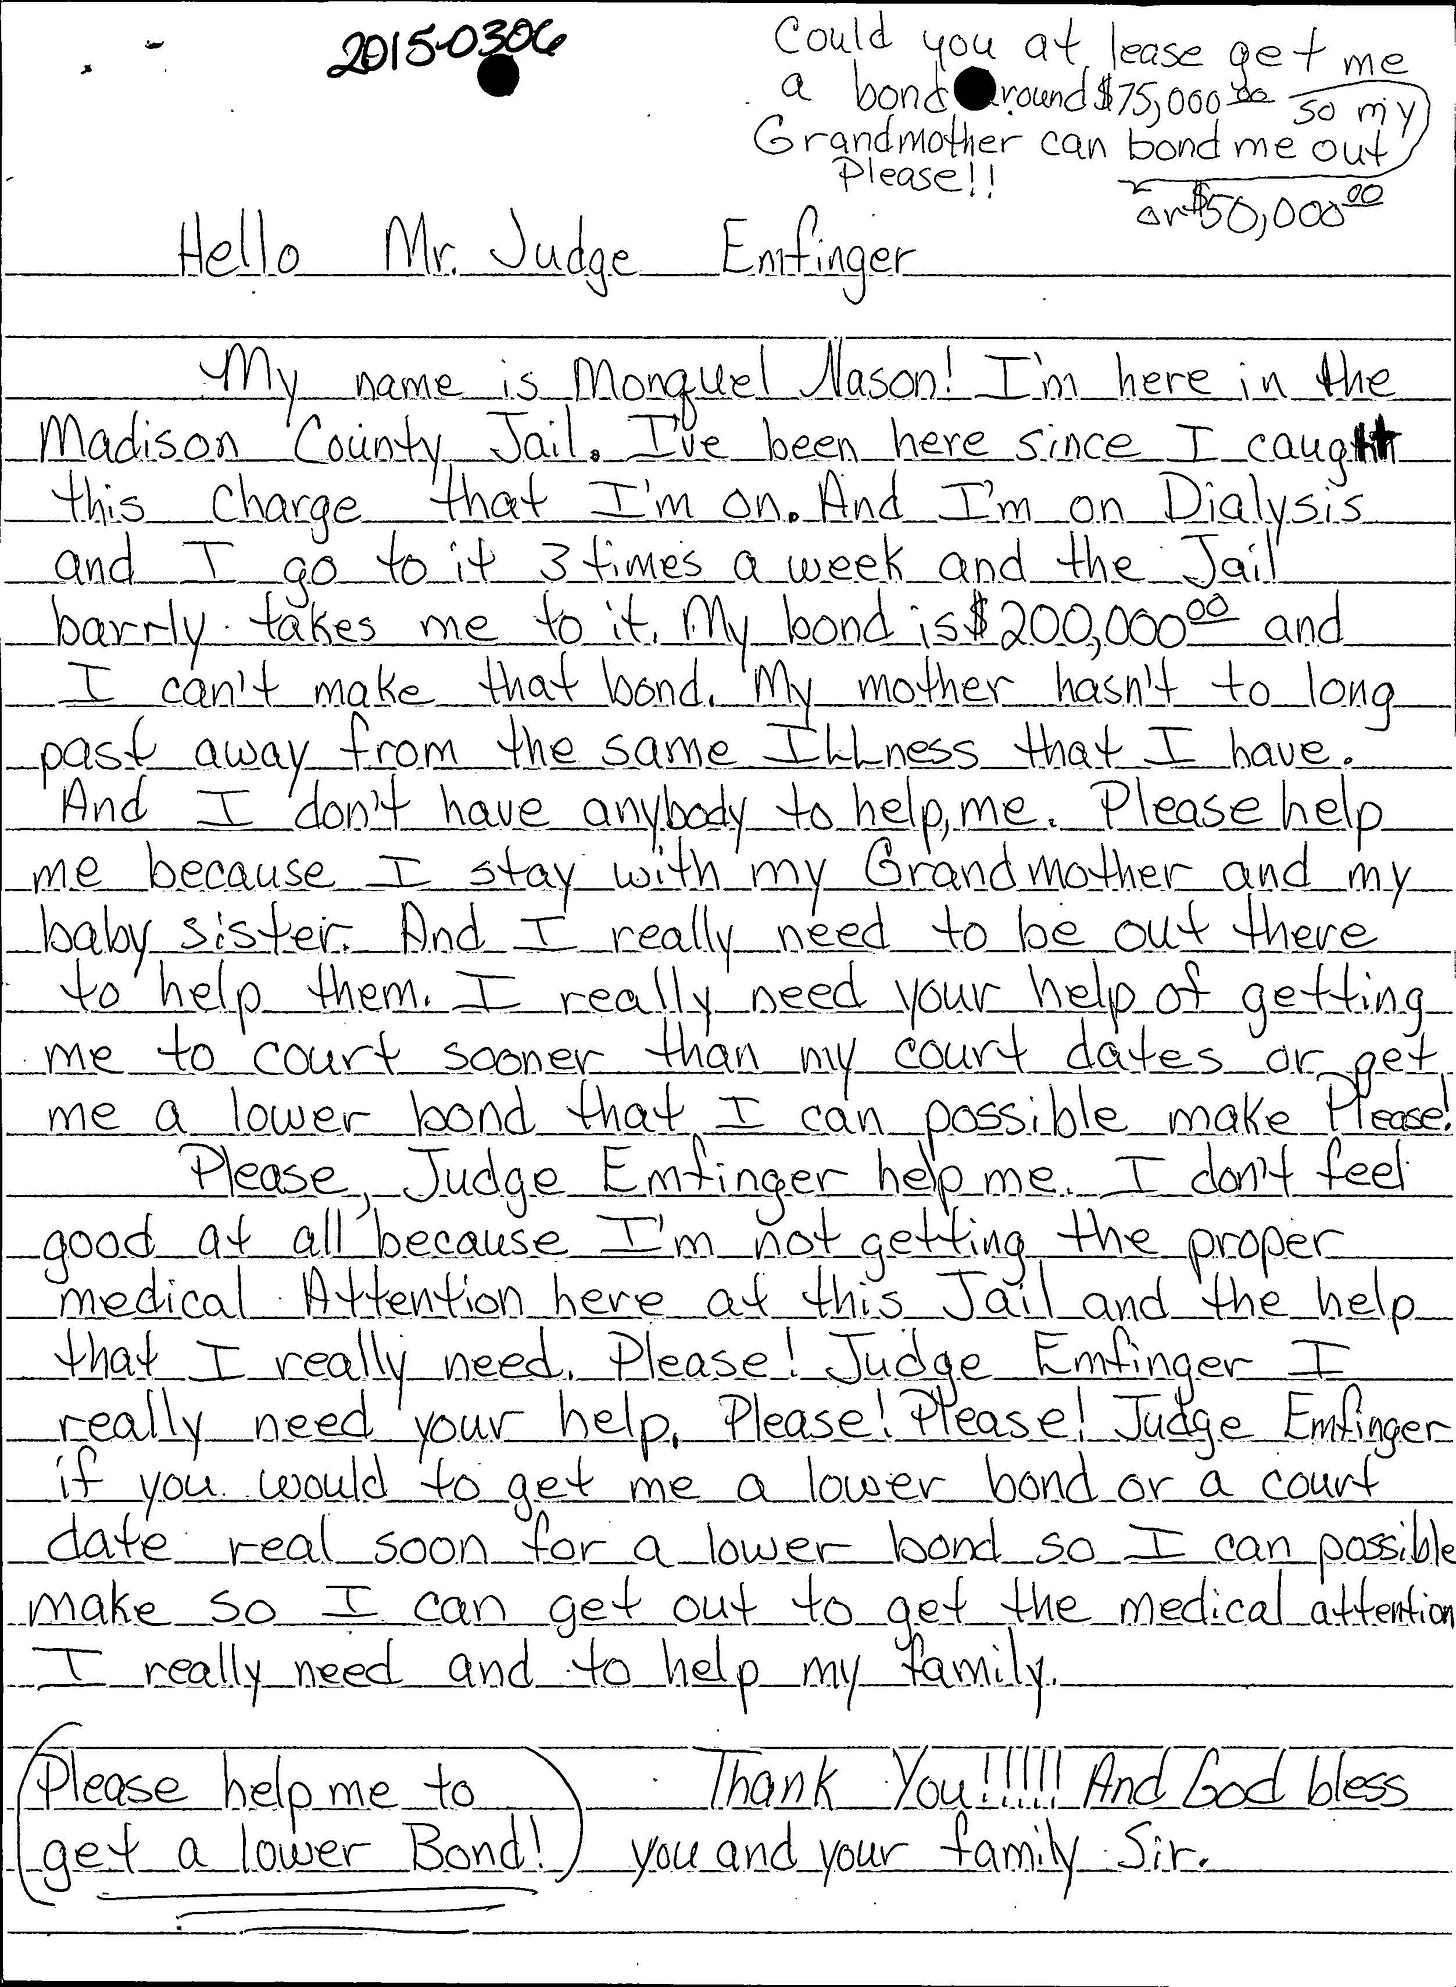 2015-0306
Could you at lease get me
a bond around $75,000.00 so my
Grandmother can bond me out
Please!!
or $50,000.00
Hello Mr. Judge Emfinger
My name is Monquel Nason! I'm here in the
Madison County Jail. I've been here since I caught
this charge that I'm on. And I'm on Dialysis
and I go to it 3 times a week and the Jail
barrly takes me to it. My bond is $200,000.00 and
I can't make that bond. My mother hasn't to long
past away from the same ILLness that I have.
And I don't have anybody to help, me. Please help
me because I stay with my Grandmother and my
baby sister. And I really need to be out there
to help them. I really need your help of getting
me to court sooner than my court dates or get
me a lower bond that I can possible make Please!
Please, Judge Emfinger help me. I don't feel
good at all because I'm not getting the proper
medical Attention here at this Jail and the help
that I really need. Please! Judge Emfinger I
really need your help. Please! Please! Judge Emfinger
if you would to get me a lower bond or a court
date real soon for a lower bond so I can possible
make so I can get out to get the medical attention
I really need and to help my family.
(Please help me to
get a lower Bond!)
Thank You!!!!! And God bless
you and your family Sir.